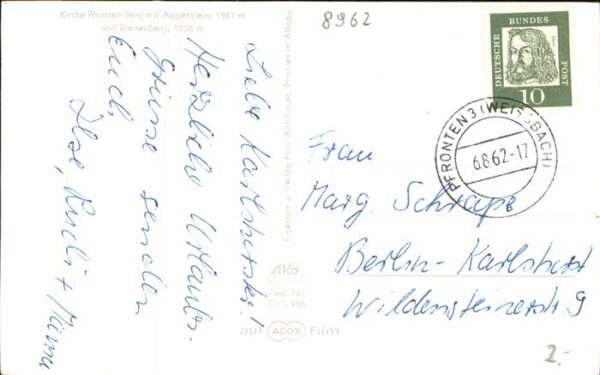 Kirche Pfronten-Berg mit Aggenstein, 1987 m
und Breitenberg, 1838 m
8962
Liebe Karlshorster!
Herzliche Urlaubs-
grüsse senden
Euch
Ilse, Rudi + Mama
Eigentum u. Verlag Foto Kohlbauer, Pfronten im Allgäu
AKo
auf ADOX Film
DEUTSCHE BUNDES POST
10
PFRONTEN 3 (WEISSBACH)
6.8.62-17
Frau
Marg. Schrape
Berlin-Karlshorst
Wildensteinerstr. 9
2.-